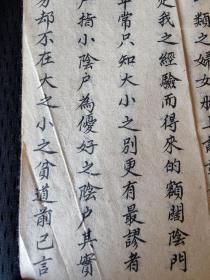 類之婦女册上
是我之經驗而得來的額闊陰門
常只知大小之別更有最謬者
戶揞小陰户為優好之陰户其實
分却不在大之小之貧道前已言